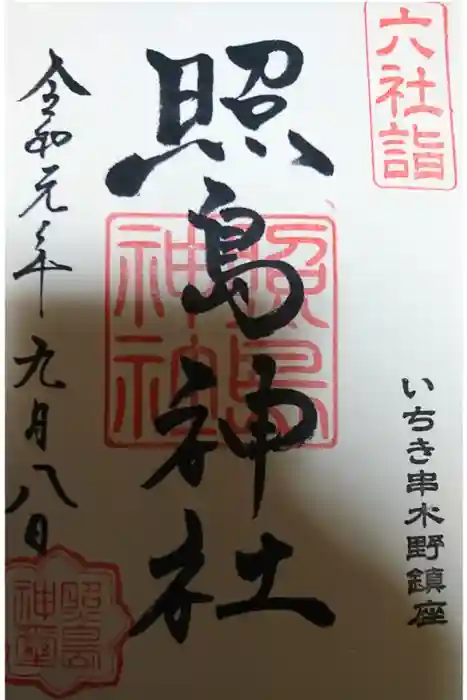 六社詣
いちき串木野鎮座
照島神社
照島
神社
令和元年九月八日
照島
神璽